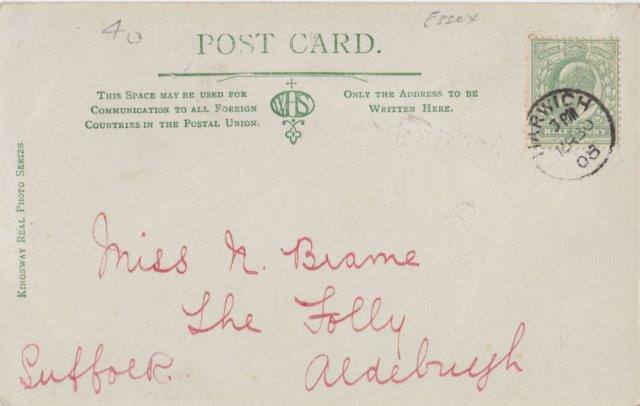 40
Essex
POST CARD.
THIS SPACE MAY BE USED FOR
COMMUNICATION TO ALL FOREIGN
COUNTRIES IN THE POSTAL UNION.
WHS
ONLY THE ADDRESS TO BE
WRITTEN HERE.
HALF PENNY
HARWICH
08
KINGSWAY REAL PHOTO SERIES
Miss N. Brame
The Folly
Aldeburgh
Suffolk